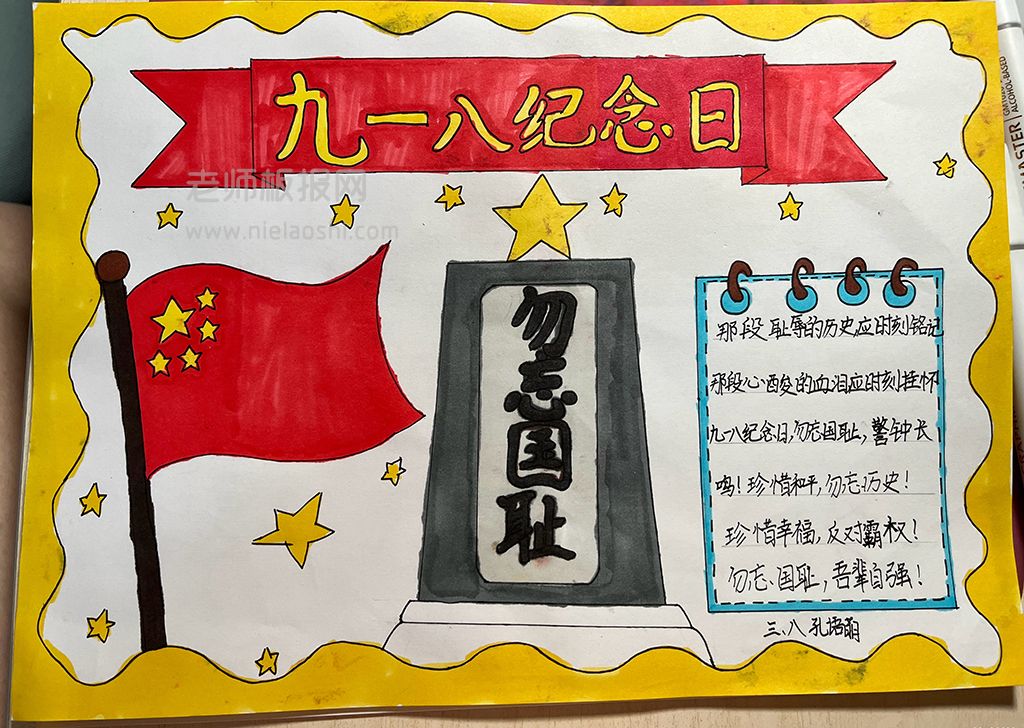 九一八纪念日
老师板报网
www.nielaoshi.com
勿忘国耻
那段耻辱的历史应时刻铭记
那段心酸的血泪应时刻挂怀
九一八纪念日,勿忘国耻,警钟长
鸣!珍惜和平,勿忘历史!
珍惜幸福,反对霸权!
勿忘、国耻,吾辈自强!
三、八 孔
MASTER
ALCOHOL-BASED